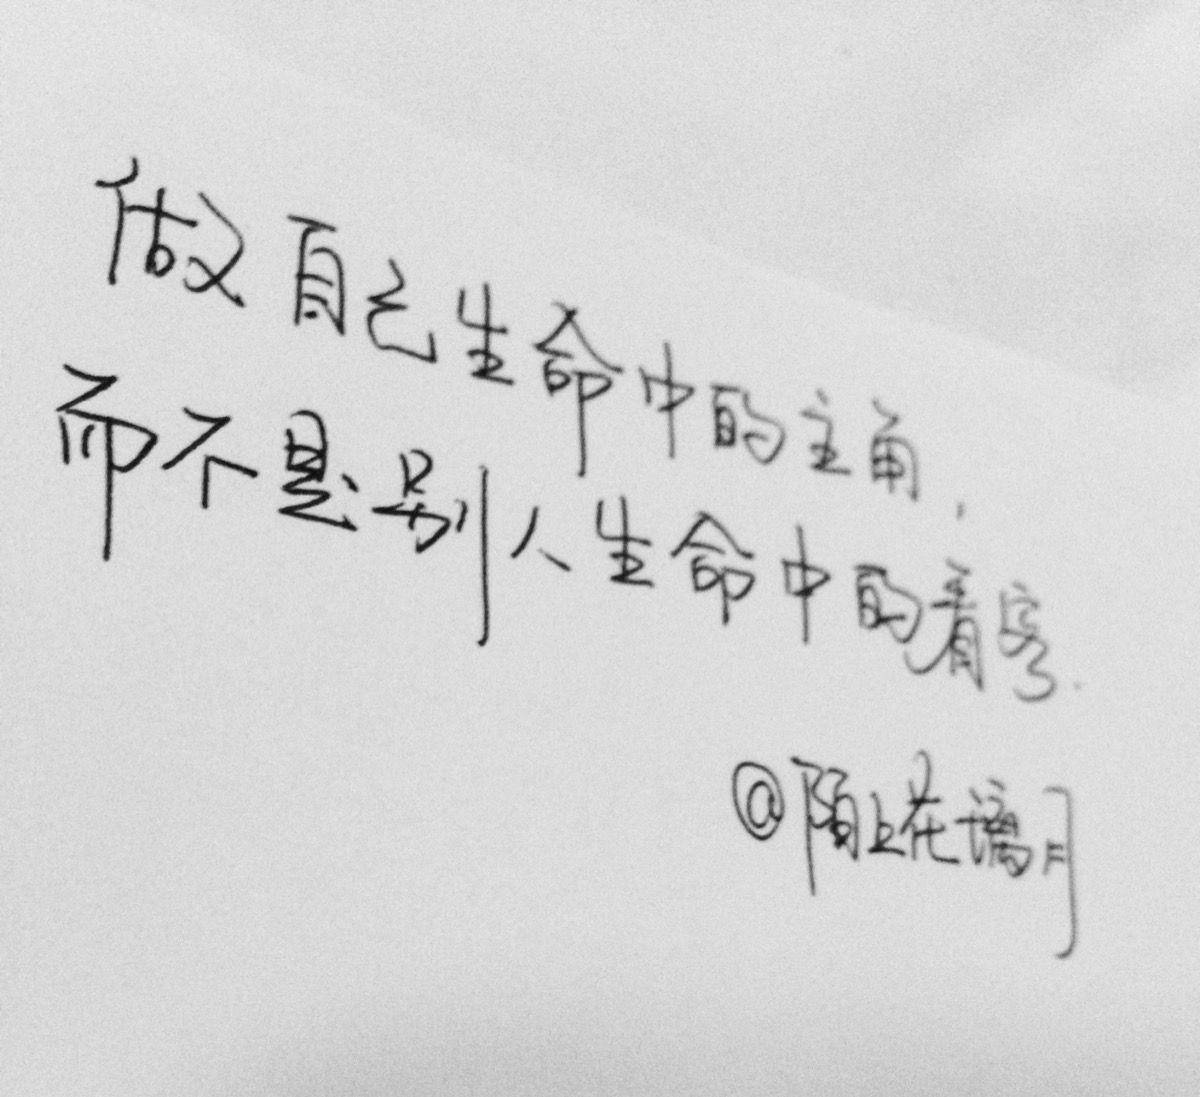 做自己生命中的主角，
而不是别人生命中的看客.
@陌上花漓月